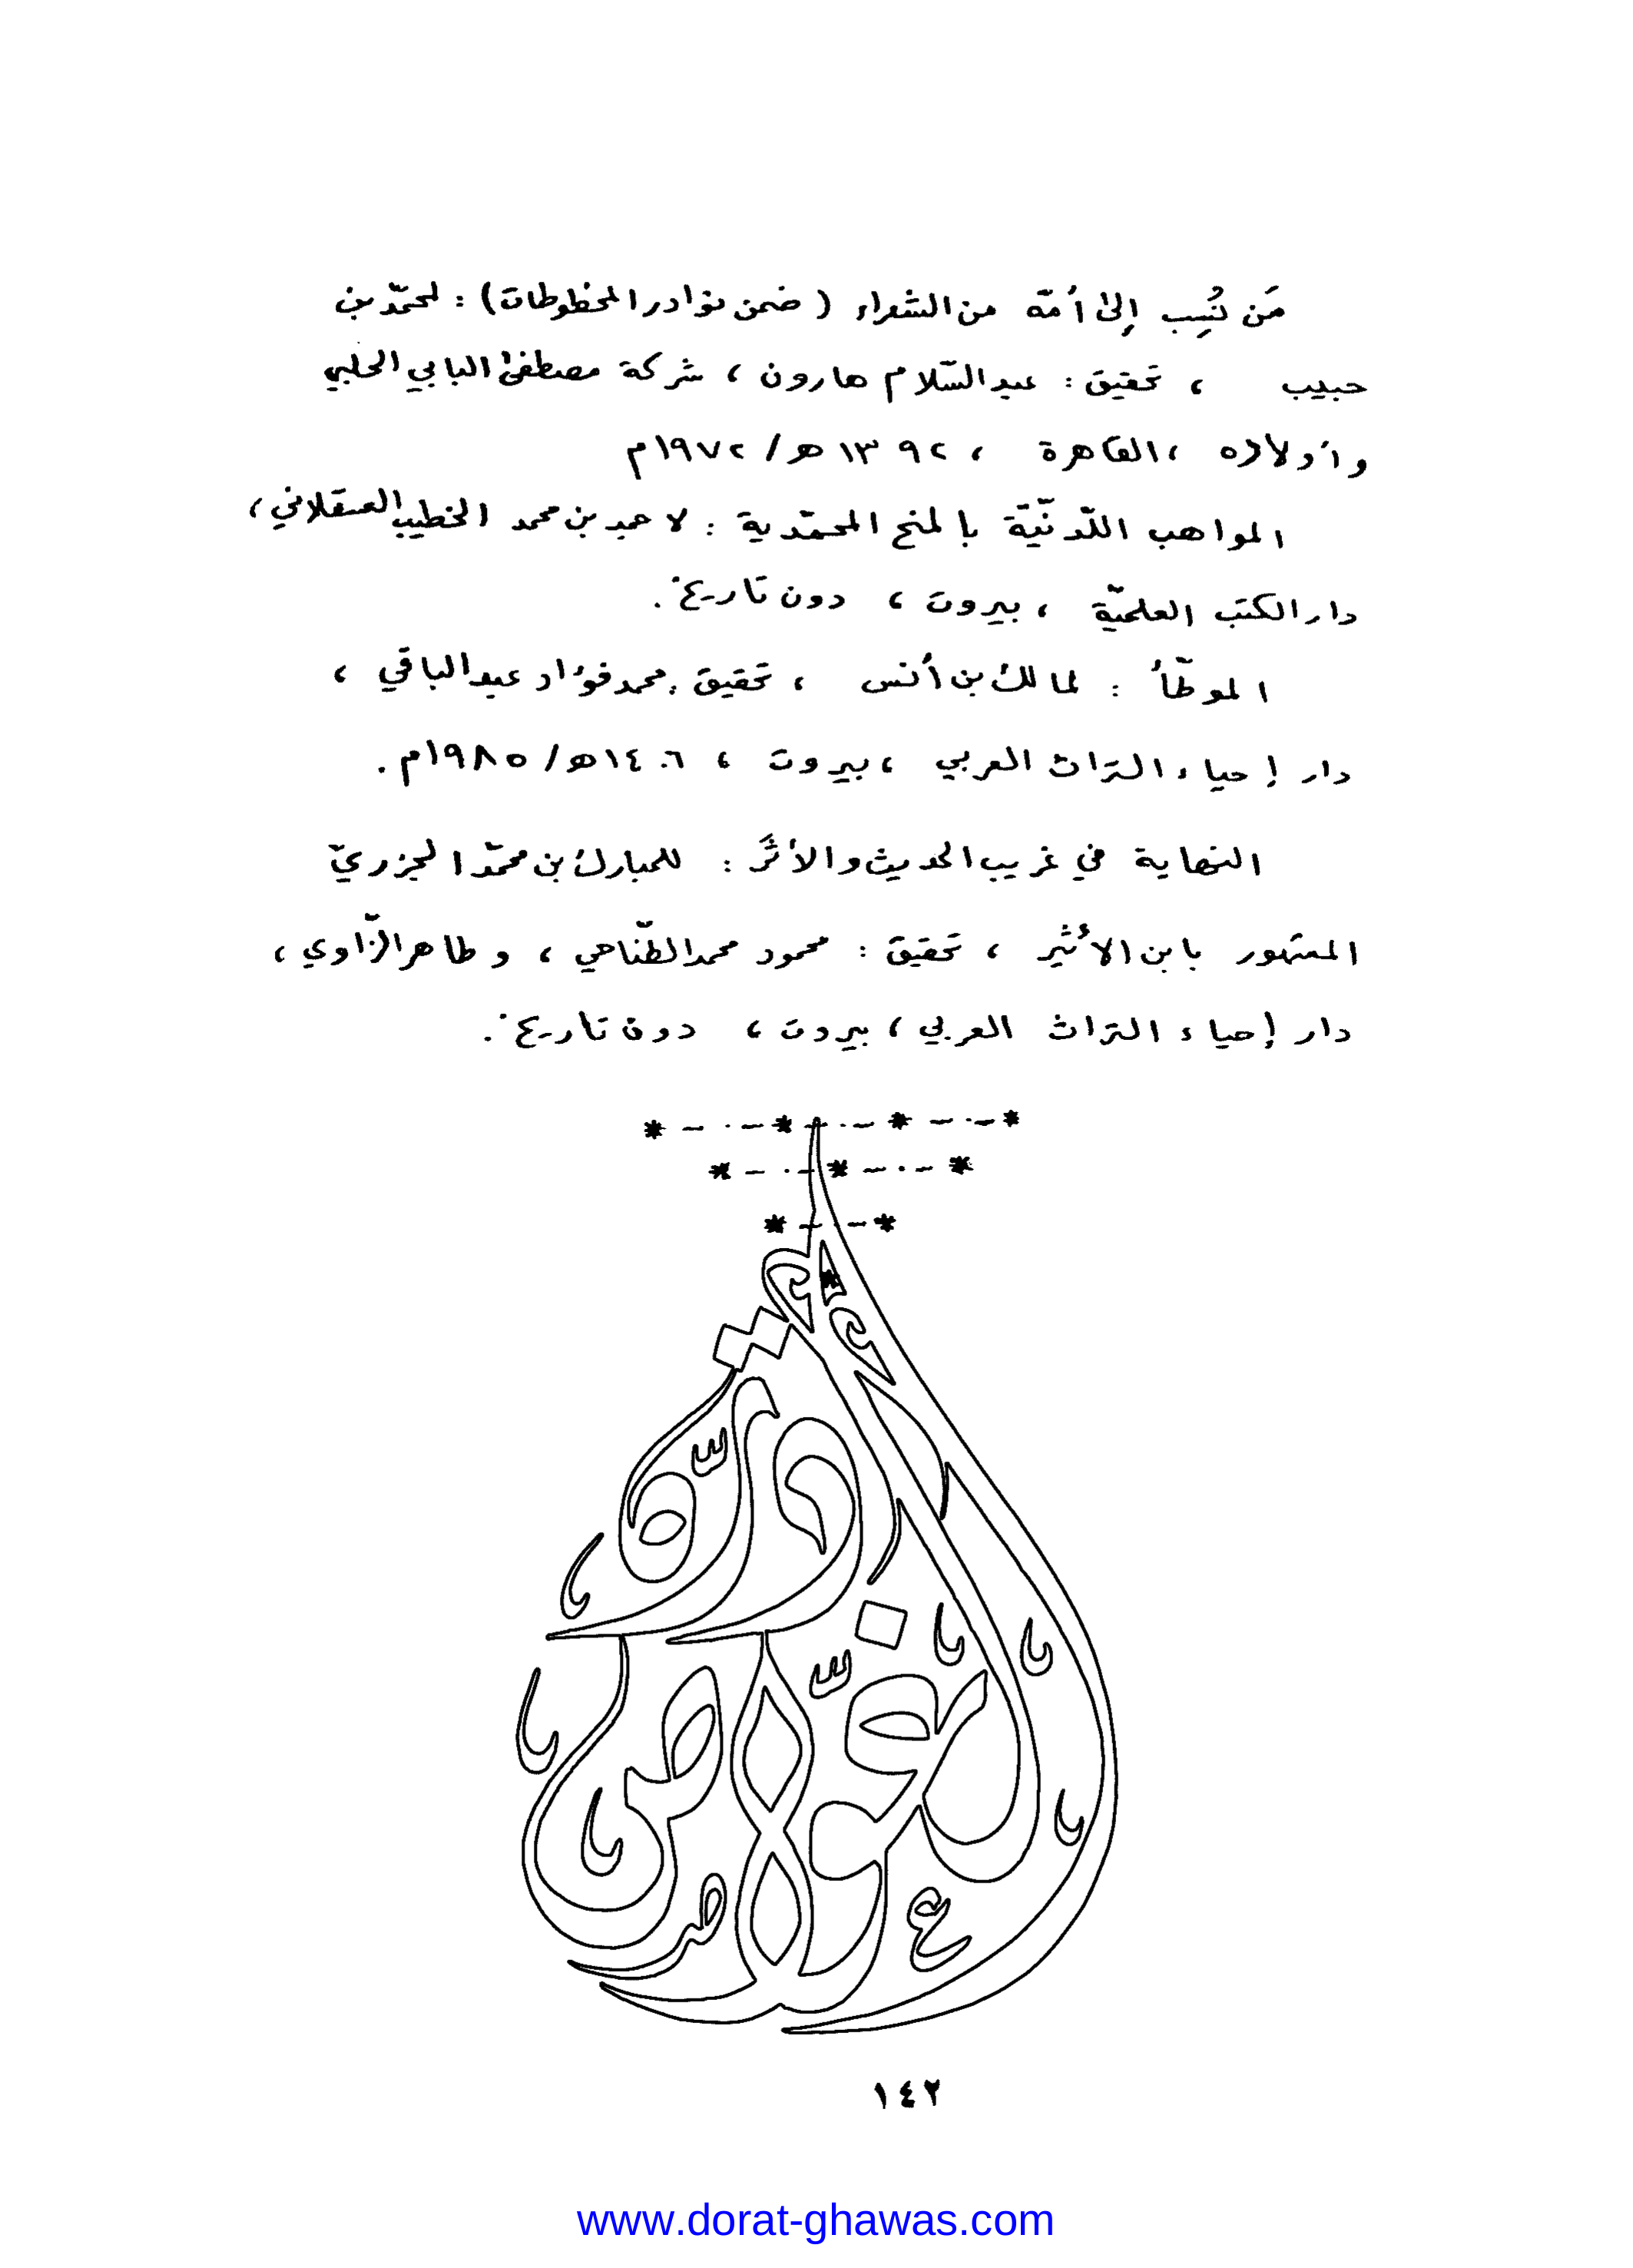 مَن نُسِب إِلىٰ أُمّه من الشعراء ( ضمن نوادر المخطوطات ) : لمحمّد بن
حبيب ، تحقيق : عبد السّلام هارون ، شركة مصطفىٰ البابي الحلبي
وأولاده ، القاهرة ، ١٣٩٢ هـ / ١٩٧٢م
المواهب اللّدنّيّة بالمنح المحمّدية : لاحمد بن محمد الخطيب العسقلاني ،
دار الكتب العلميّة ، بيروت ، دون تاريخ .
الموطّأ : لمالك بن أنس ، تحقيق : محمد فؤاد عبد الباقي ،
دار إحياء التراث العربي ، بيروت ، ١٤٠٦هـ / ١٩٨٥م .
النهاية في غريب الحديث والأثَر : للمبارك بن محمّد الجزريّ
المشهور بابن الأثير ، تحقيق : محمود محمد الطّناحي ، وطاهر الزّاوي ،
دار إحياء التراث العربي ، بيروت ، دون تاريخ .
* – · – * – · – * – · – *
* – · – * – · – *
* – · – *
*
درّة الغوّاص
١٤٢
www.dorat-ghawas.com